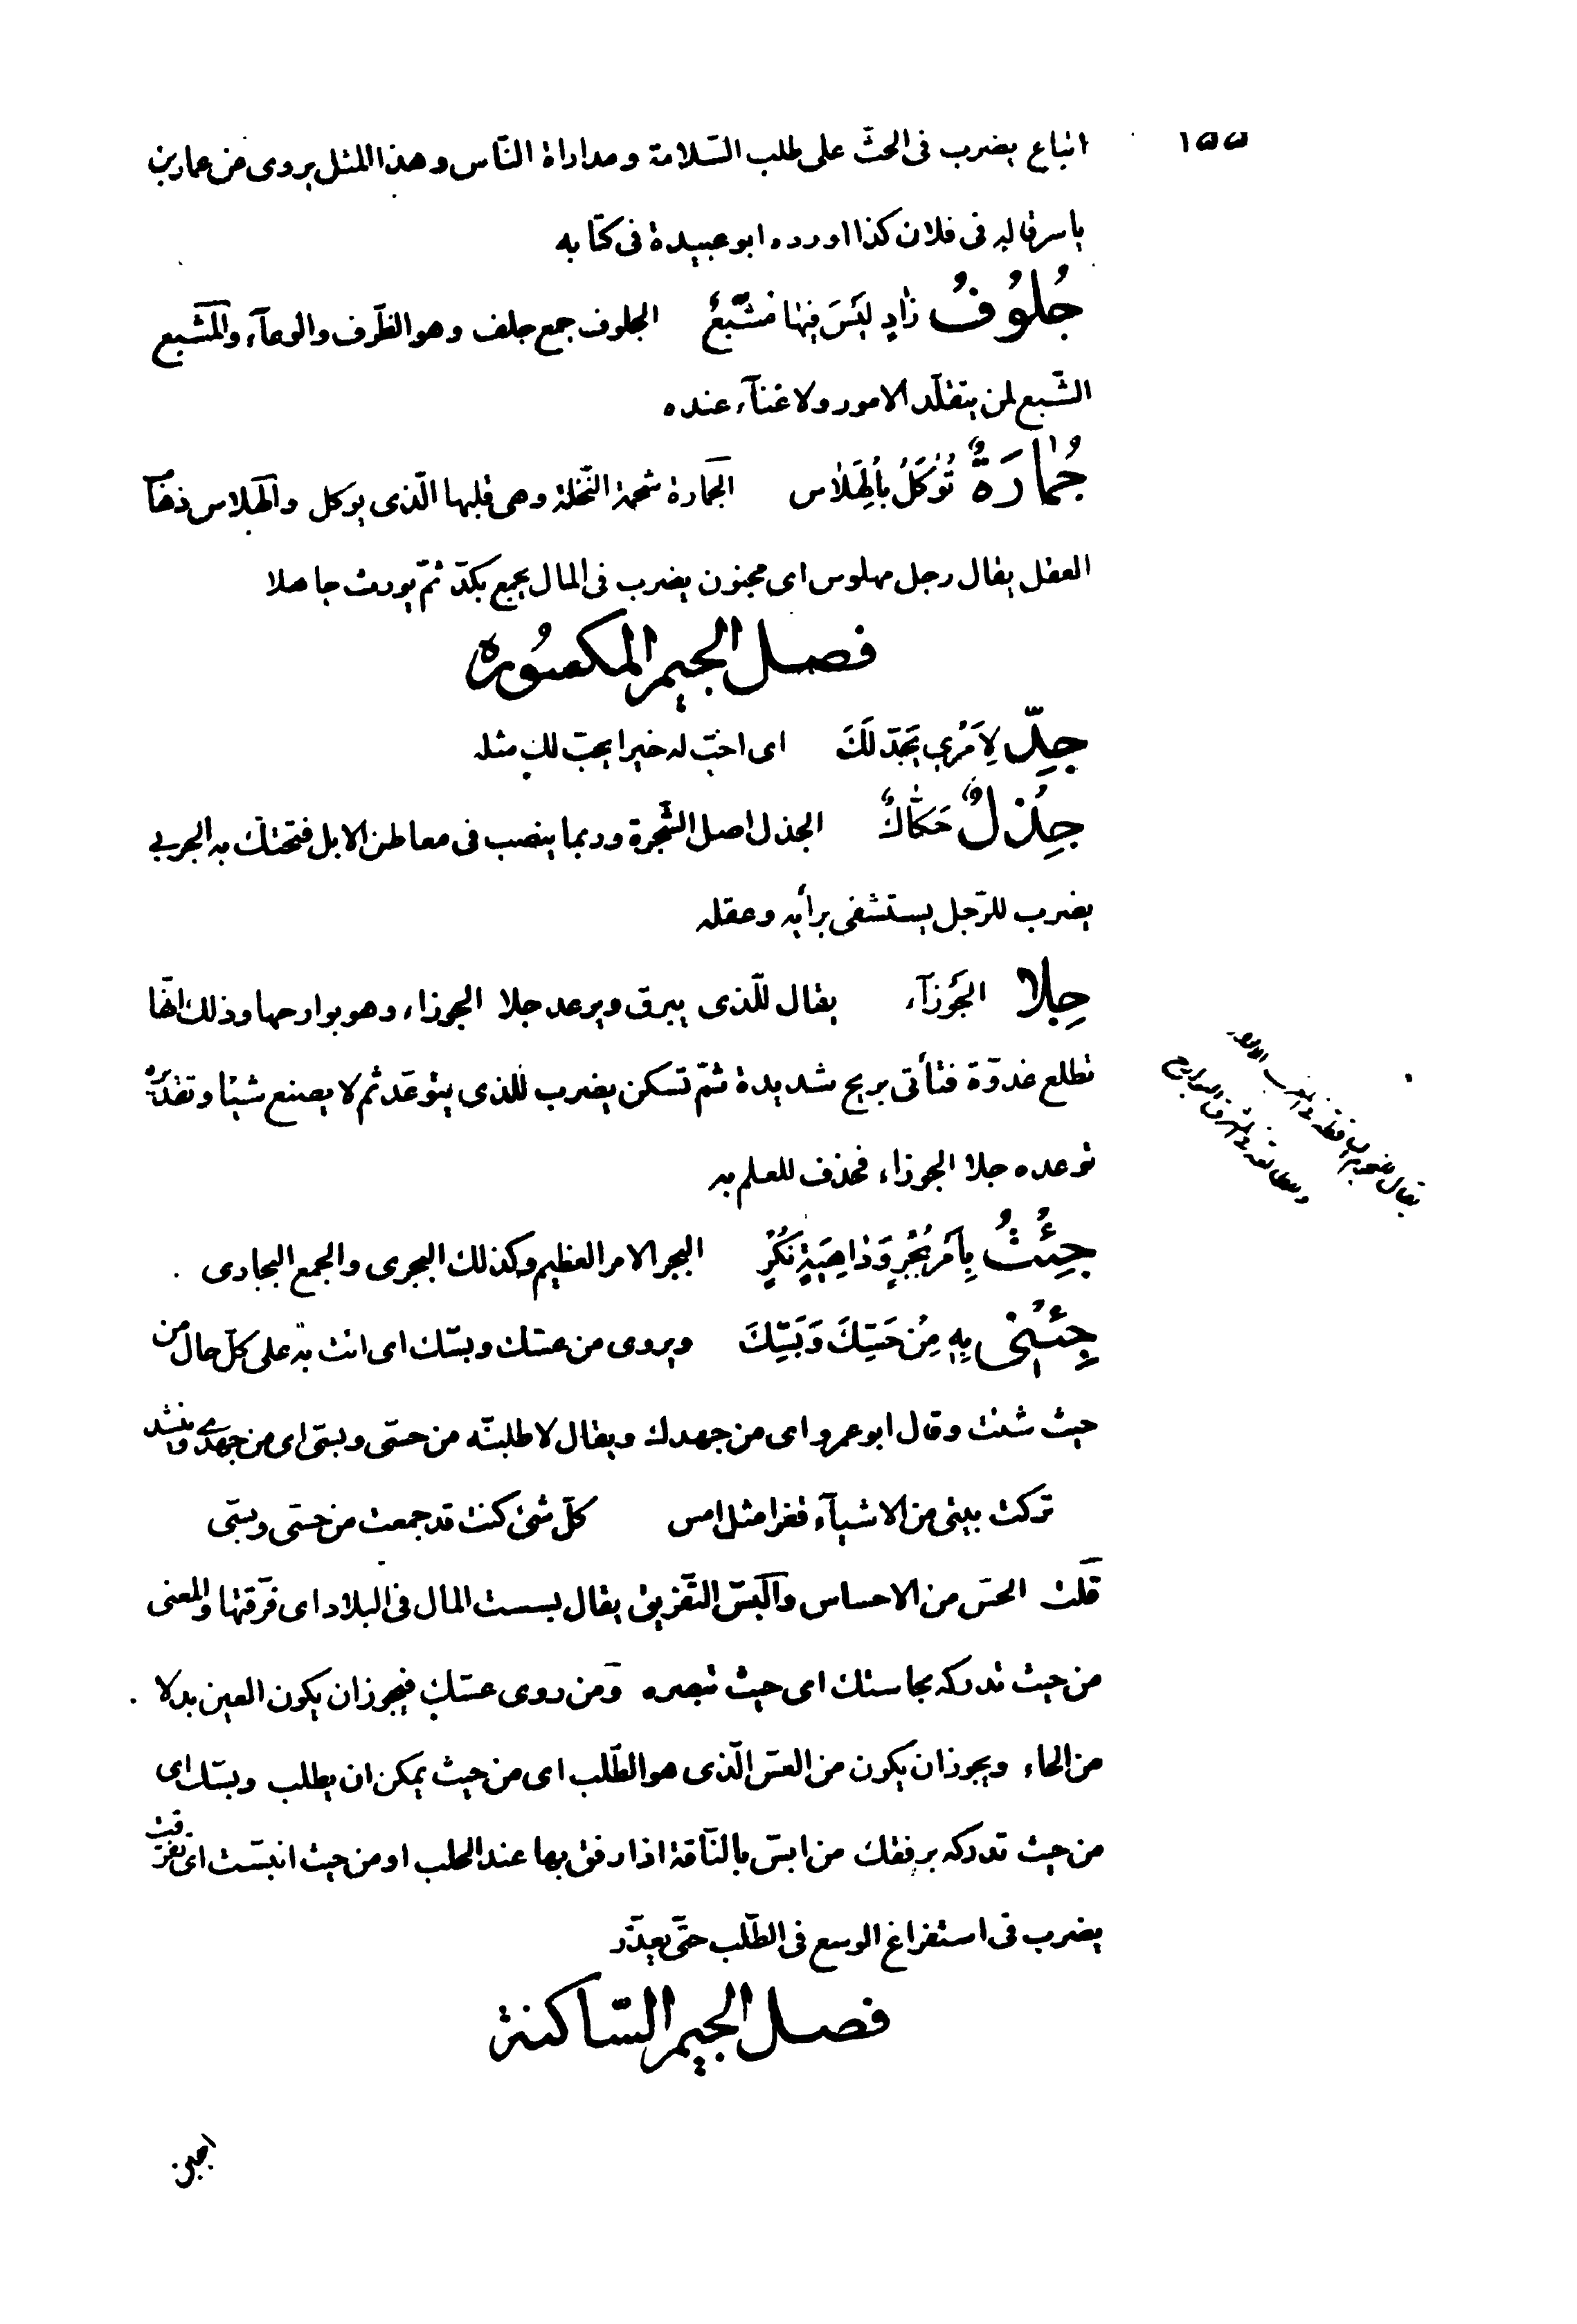 ١٥٥
اتباع يضرب فى الحثّ على طلب السّلامة ومداراة النّاس وهذا المثل يروى عن عمار بن
ياسر قاله فى فلان كذا اورده ابو عبيدة فى كتابه
جُلُوفُ زٰادٍ لَيْسَ فِيهٰا مَشْبَعٌ الجلوف جمع جلف وهو الظّرف والوعآء والمشبع
الشّبع لمن يتقلّد الامور ولا غنآء عنده
جُمّٰارَةٌ تُؤْكَلُ بِالْهُلاٰس الجمارة شحمة النّخلة وهى قلبها الّذى يؤكل والهلاس ذهآب
العقل يقال رجل مهلوس اى مجنون يضرب فى المال يجمع بكدّ ثمّ يورث جاهلا
فصل الجيم المكسوره
جِدّ لِاَمْرِي يَجِدّ لَكَ اى احبّ له خيرا يحبّ لك مثله
جِذْلُ حَكٰاكٌ الجذل اصل الشّجرة وربما ينصب فى معاطن الابل فتحتكّ به الجربى
يضرب للرّجل يستشفى برأيه وعقله
جِلا الجَوْزآء يقال للّذى يبرق ويرعد جلا الجوزاء وهو بوارحها وذلك انّها
تطلع غدوّة فتأتى بريح شديدة ثمّ تسكن يضرب للّذى يتوعّد ثم لا يصنع شيئا وتقديره
توعده جلا الجوزاء فحذف للعلم به
جِئْتُ بِاَمْرٍ بُجْرٍ وَدٰاهِيَةٍ نُكْرٍ البجر الامر العظيم وكذلك البجرى والجمع البجارى
جِئْنِى بِهِ مِنْ حَسِّكَ وَبَسِّكَ ويروى من عسّك وبسّك اى ائت به على كلّ حال من
حيث شئت وقال ابو عمرو اى من جهدك ويقال لاطلبنّه من حسّى وبسّى اى من جهدى وينشد
تركت بيتى من الاشيآء قفرا مثل امس كلّ شئ كنت قد جمعت من حسّى وبسّى
قلت الحسّ من الاحساس والبسّ التّفريق يقال بسست المال فى البلاد اى فرّقتها والمعنى
من حيث تدركه بحاستك اى حيث تبصره ومن روى عسّك فيجوز ان يكون العين بدلا
من الحاء ويجوز ان يكون من العسّ الّذى هو الطّلب اى من حيث يمكن ان يطلب وبسّك اى
من حيث تدركه برفقك من ابسّ بالنّاقة اذا رفق بها عند الحلب او من حيث انبسّت اى تفرّقت
يضرب فى استفراغ الوسع فى الطّلب حتّى يعذّر
فصل الجيم السّاكنة
اجبن